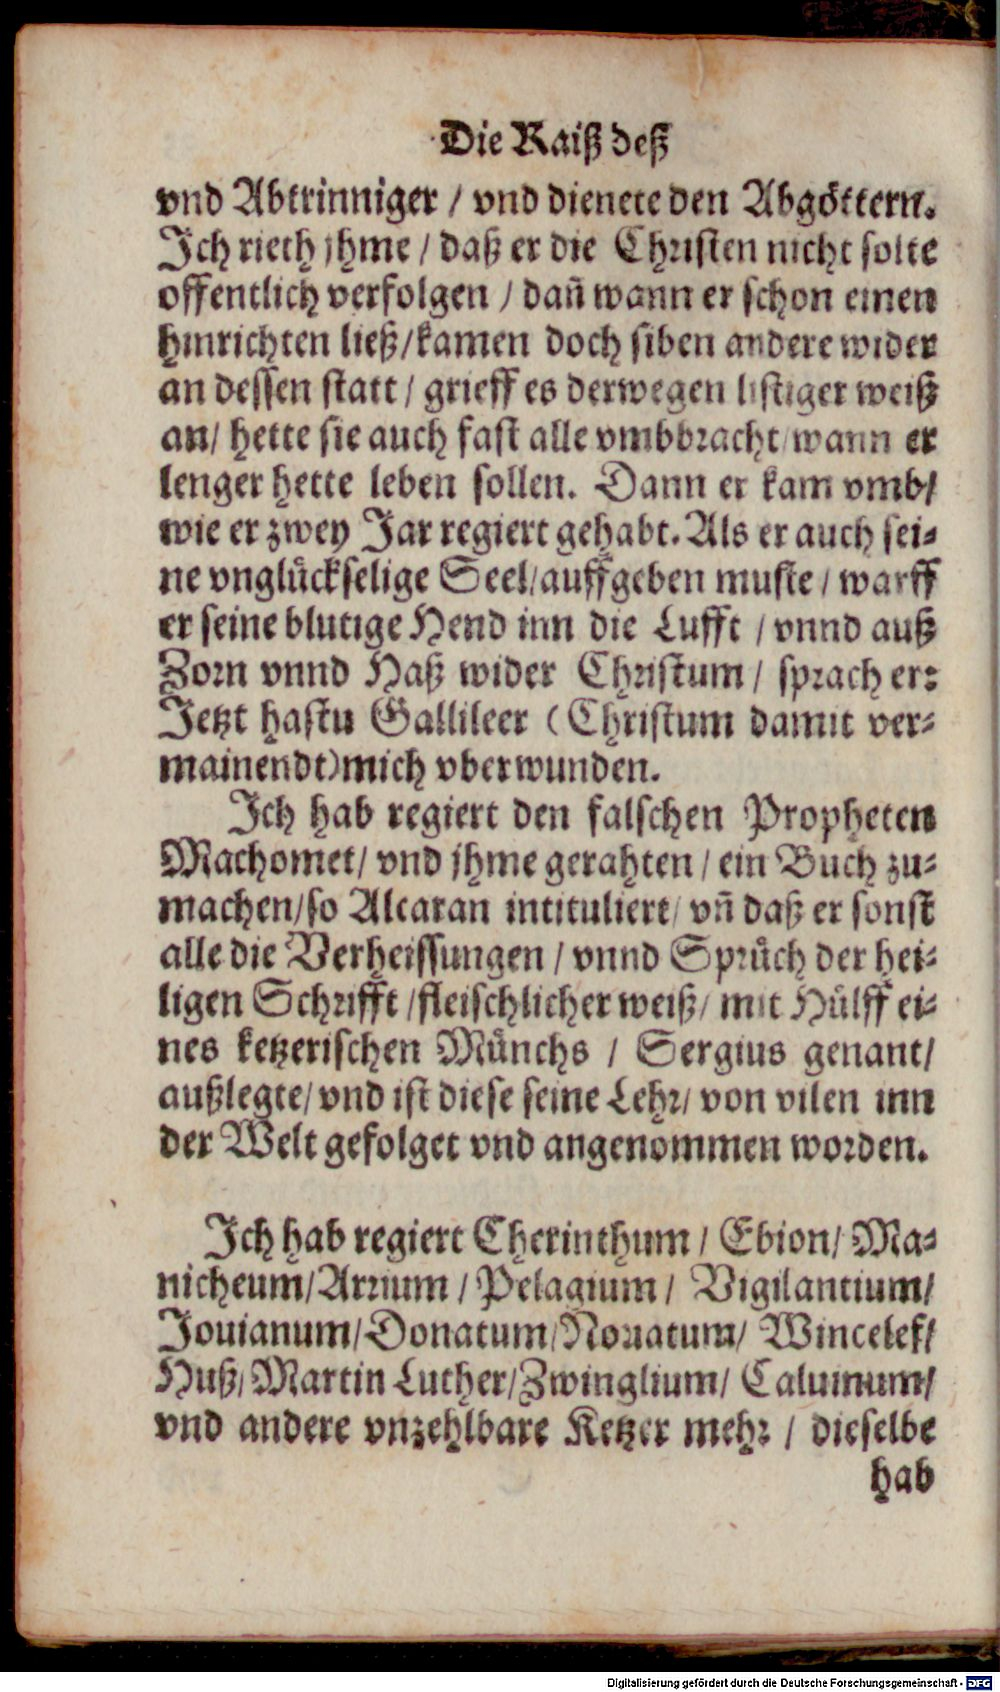 Die Raiß deß
vnd Abtrinniger / vnd dienete den Abgöttern.
Ich rieth jhme / daß er die Christen nicht solte
offentlich verfolgen / dañ wann er schon einen
hinrichten ließ / kamen doch siben andere wider
an dessen statt / grieff es derwegen listiger weiß
an / hette sie auch fast alle vmbbracht / wann er
lenger hette leben sollen. Dann er kam vmb /
wie er zwey Jar regiert gehabt. Als er auch sei-
ne vnglückselige Seel / auffgeben muste / warff
er seine blutige Hend inn die Lufft / vnnd auß
Zorn vnnd Haß wider Christum / sprach er:
Jetzt hastu Gallileer (Christum damit ver-
mainendt) mich vberwunden.
Ich hab regiert den falschen Propheten
Machomet / vnd jhme gerahten / ein Buch zu-
machen / so Alcaran intituliert / vñ daß er sonst
alle die Verheissungen / vnnd Sprüch der hei-
ligen Schrifft / fleischlicher weiß / mit Hülff ei-
nes ketzerischen Münchs / Sergius genant /
außlegte / vnd ist diese seine Lehr / von vilen inn
der Welt gefolget vnd angenommen worden.
Ich hab regiert Cherinthum / Ebion / Ma-
nicheum / Arrium / Pelagium / Vigilantium /
Jouianum / Donatum / Nouatum / Wincelef /
Huß / Martin Luther / Zwinglium / Caluinum /
vnd andere vnzehlbare Ketzer mehr / dieselbe
hab
Digitalisierung gefördert durch die Deutsche Forschungsgemeinschaft - DFG